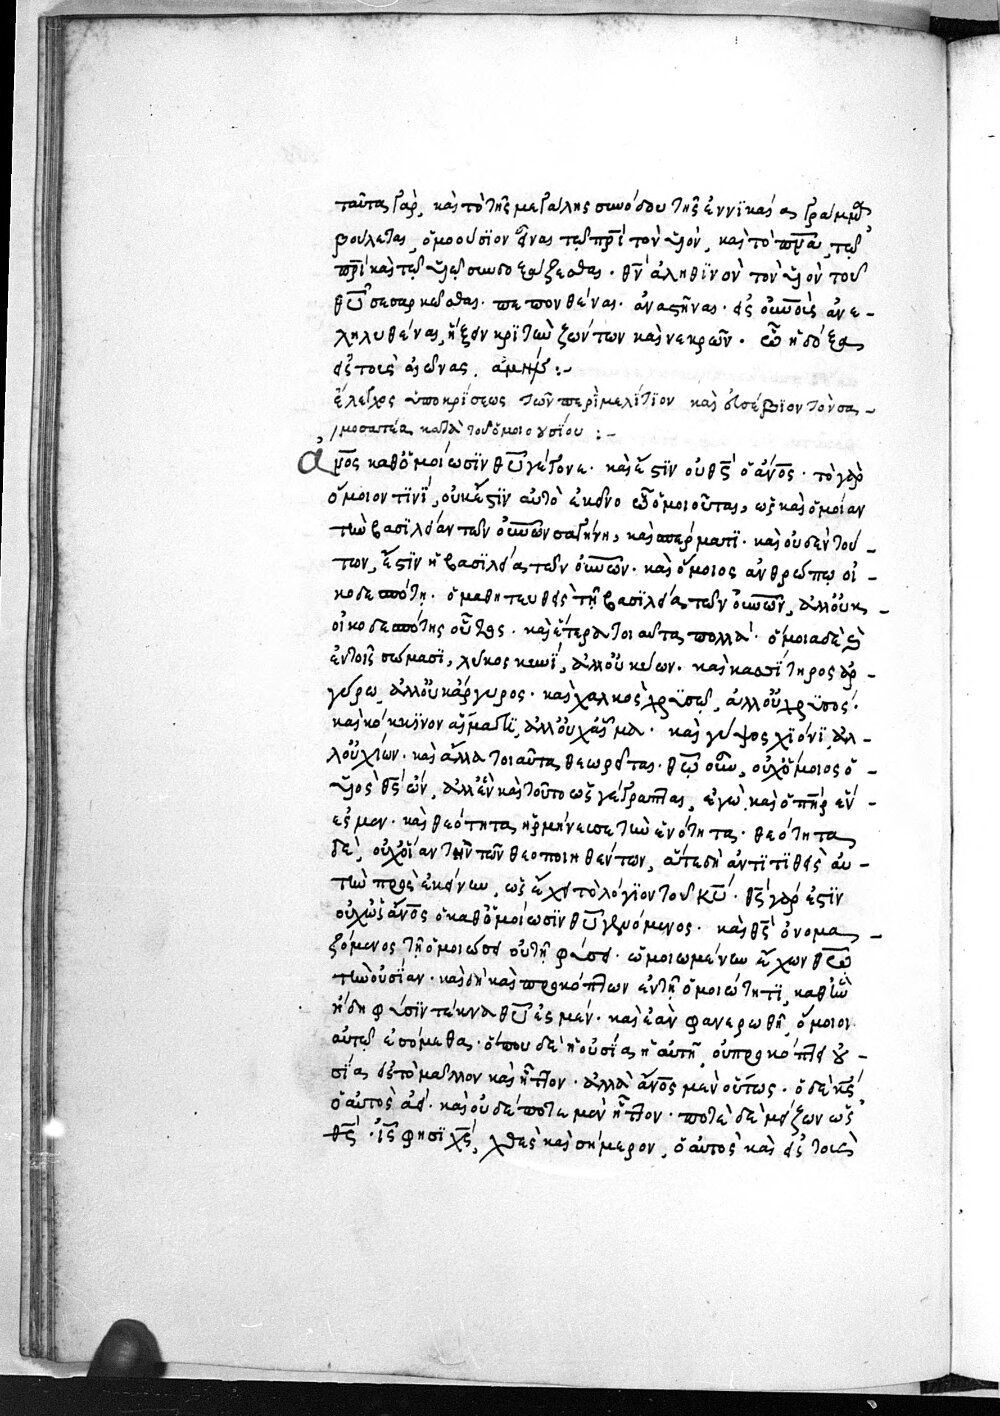 ταῦτα γὰρ, καὶ τὸ τῆς μεγάλης συνόδου τῆς ἐν νικαία γράμμα
βούλεται, ὁμοούσιον εἶναι τῶ πρὶ τὸν υἱὸν, καὶ τὸ πνᾶ, τῶ
πρὶ καὶ τῶ υἱῶ συνδοξάζεσθαι. θν ἀληθινὸν τὸν υἱὸν τοῦ
θῦ σεσαρκῶσθαι. πεπονθέναι. ἀναστῆναι. εἰς οὐνοὺς ἀνε-
ληλυθέναι, ἥξειν κριτὴν ζώντων καὶ νεκρῶν. ὧ ἡ δόξα
εἰς τοὺς αἰῶνας, ἀμήν :-
ἔλεγχος ὑποκρίσεως τῶν περὶ μελίτιον καὶ εὐσέβιον τὸν σα-
μοσατέα κατὰ τοῦ ὁμοουσίου :-
ἄνος καθ' ὁμοίωσιν θῦ γέγονε. καὶ ἔστιν οὐ θς ὁ ἄνος. τὸ γὰρ
ὅμοιον τινὶ, οὐκ ἔστιν αὐτὸ ἐκεῖνο ὧ ὁμοιοῦται, ὡς καὶ ὁμοίαν
τὴν βασιλείαν τῶν οὐνῶν σαγήνη, καὶ σπέρματι. καὶ οὐδὲν τού-
των, ἔστιν ἡ βασιλεία τῶν οὐνῶν. καὶ ὅμοιος ἀνθρώπω οἰ-
κοδεσπότη. ὁ μαθητευθεὶς τῆ βασιλεία τῶν οὐνῶν, ἀλλ' οὐκ
οἰκοδεσπότης οὗτος. καὶ ἕτερα τοιαῦτα πολλά. ὅμοια δὲ
ἐν τοῖς σώμασι, λύκος κυνὶ, ἀλλ' οὐ κύων. καὶ κασσίτηρος ἀρ-
γύρω, ἀλλ' οὐκ ἄργυρος. καὶ χαλκὸς χρυσῶ, ἀλλ' οὐ χρυσός.
καὶ κόκκινον αἵματι, ἀλλ' οὐχ αἷμα. καὶ γύψος χιόνι, ἀλ-
λ' οὐ χιών. καὶ ἄλλα τοιαῦτα θεωρεῖται. θῶ οὖν, οὐχ ὅμοιος ὁ
υἱὸς θς ὤν, ἀλλ' ἓν κατὰ τοῦτο ὡς γέγραπται, ἐγὼ καὶ ὁ πὴρ ἕν
ἐσμεν. καὶ θεότητα ἡρμήνευσε τὴν ἑνότητα. θεότητα
δὲ, οὐχ οἵαν τὴν τῶν θεοποιηθέντων, αὕτη δὴ ἀντιτιθεὶς αὐ-
τὴν πρὸς ἐκείνην, ὡς ἔχει τὸ λόγιον τοῦ κῦ. θς γάρ ἐστιν
οὐχ ὡς ἄνος ὁ καθ' ὁμοίωσιν θῦ γενόμενος. καὶ θς ὀνομα-
ζόμενος τῆ ὁμοιώσει οὐ τῆ φύσει. ὡμοιωμένην ἔχων θεῶ
τὴν οὐσίαν. καὶ δὴ καὶ προκόπτων ἐν τῆ ὁμοιότητι, καθ' ἣν
ἤδη φύσιν τέκνα θῦ ἐσμέν. καὶ ἐὰν φανερωθῆ, ὅμοιοι
αὐτῶ ἐσόμεθα. ὅπου δὲ ἡ οὐσία ἡ αὐτὴ, οὐ προκόπτει οὐ-
σία εἰς τὸ μᾶλλον καὶ ἧττον. ἀλλὰ ἄνος μὲν οὕτως. ὁ δὲ κς
ὁ αὐτὸς ἀεί. καὶ οὐδέποτε μὲν ἧττον. ποτὲ δὲ μείζων ὡς
θς. ις φησὶ χς, χθὲς καὶ σήμερον, ὁ αὐτὸς καὶ εἰς τοὺς